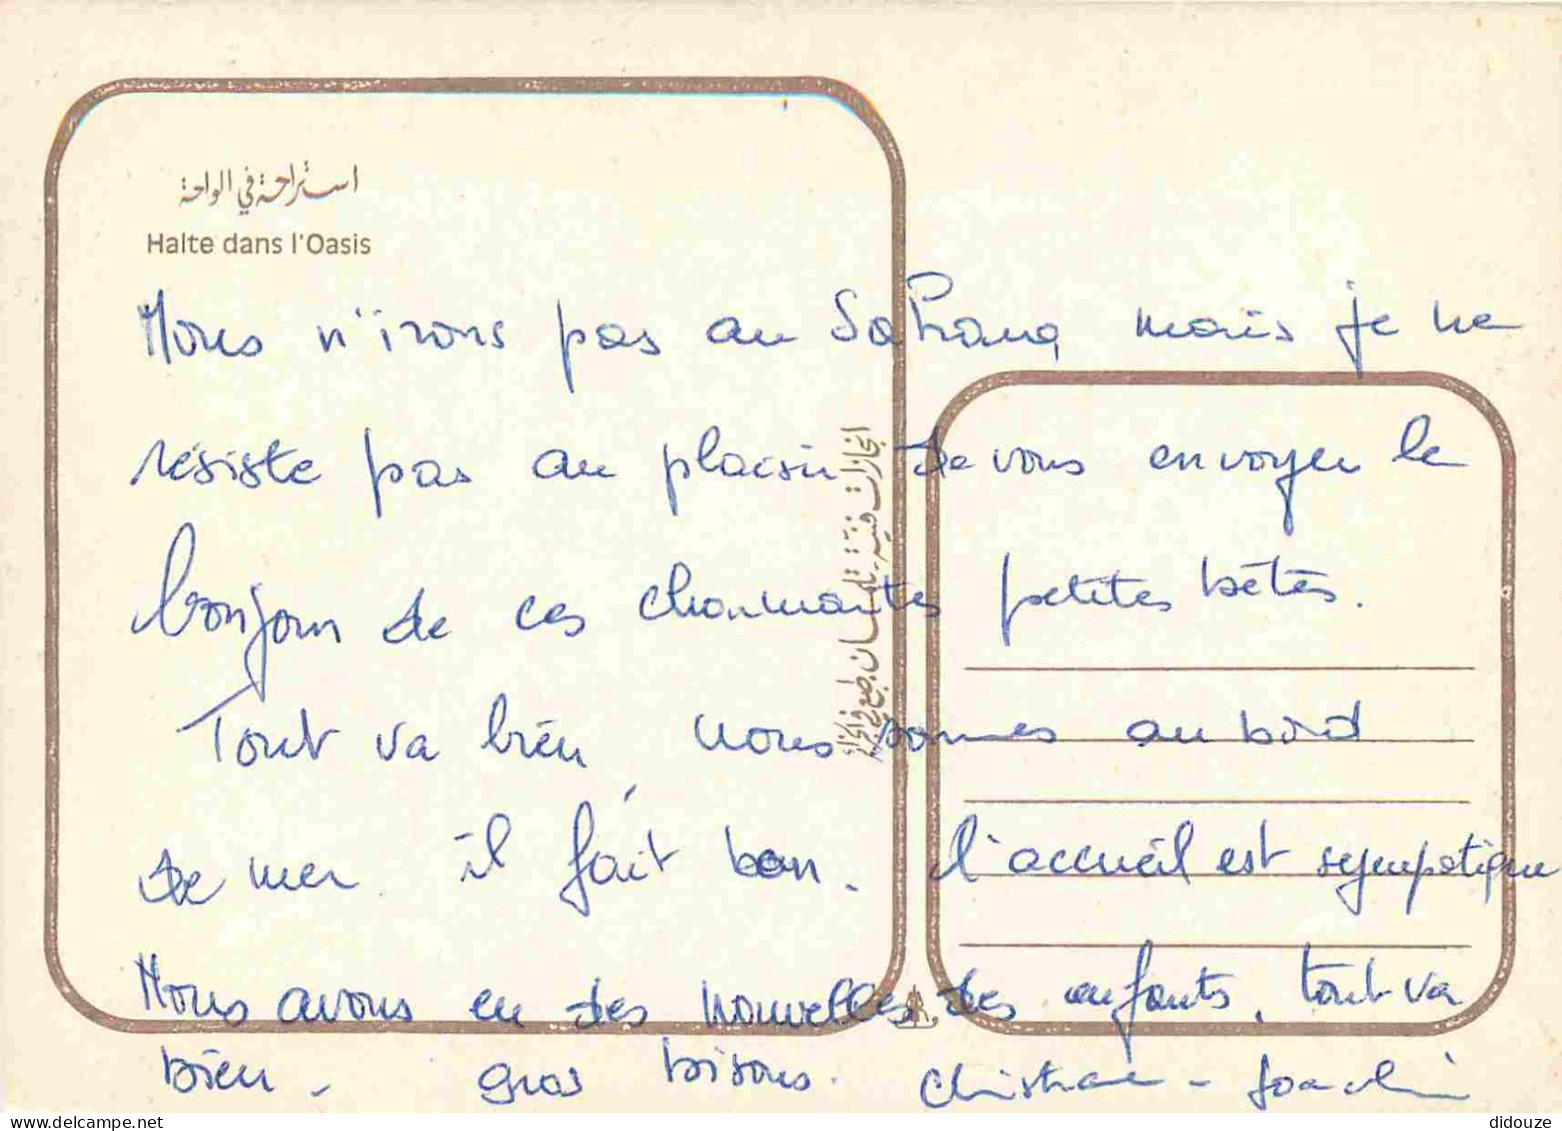 استراحة في الواحة
Halte dans l'Oasis
Nous n'irons pas au Sahara, mais je ne
résiste pas au plaisir de vous envoyer le
bonjour de ces charmantes petites bêtes.
Tout va bien, nous sommes au bord
de mer. il fait bon. l'accueil est sympatique
Nous avons eu des nouvelles des enfants, tout va
bien - gros bisous. Christiane - Joachim
انجازات فنية تلمسان طبع في الجزائر
didouze